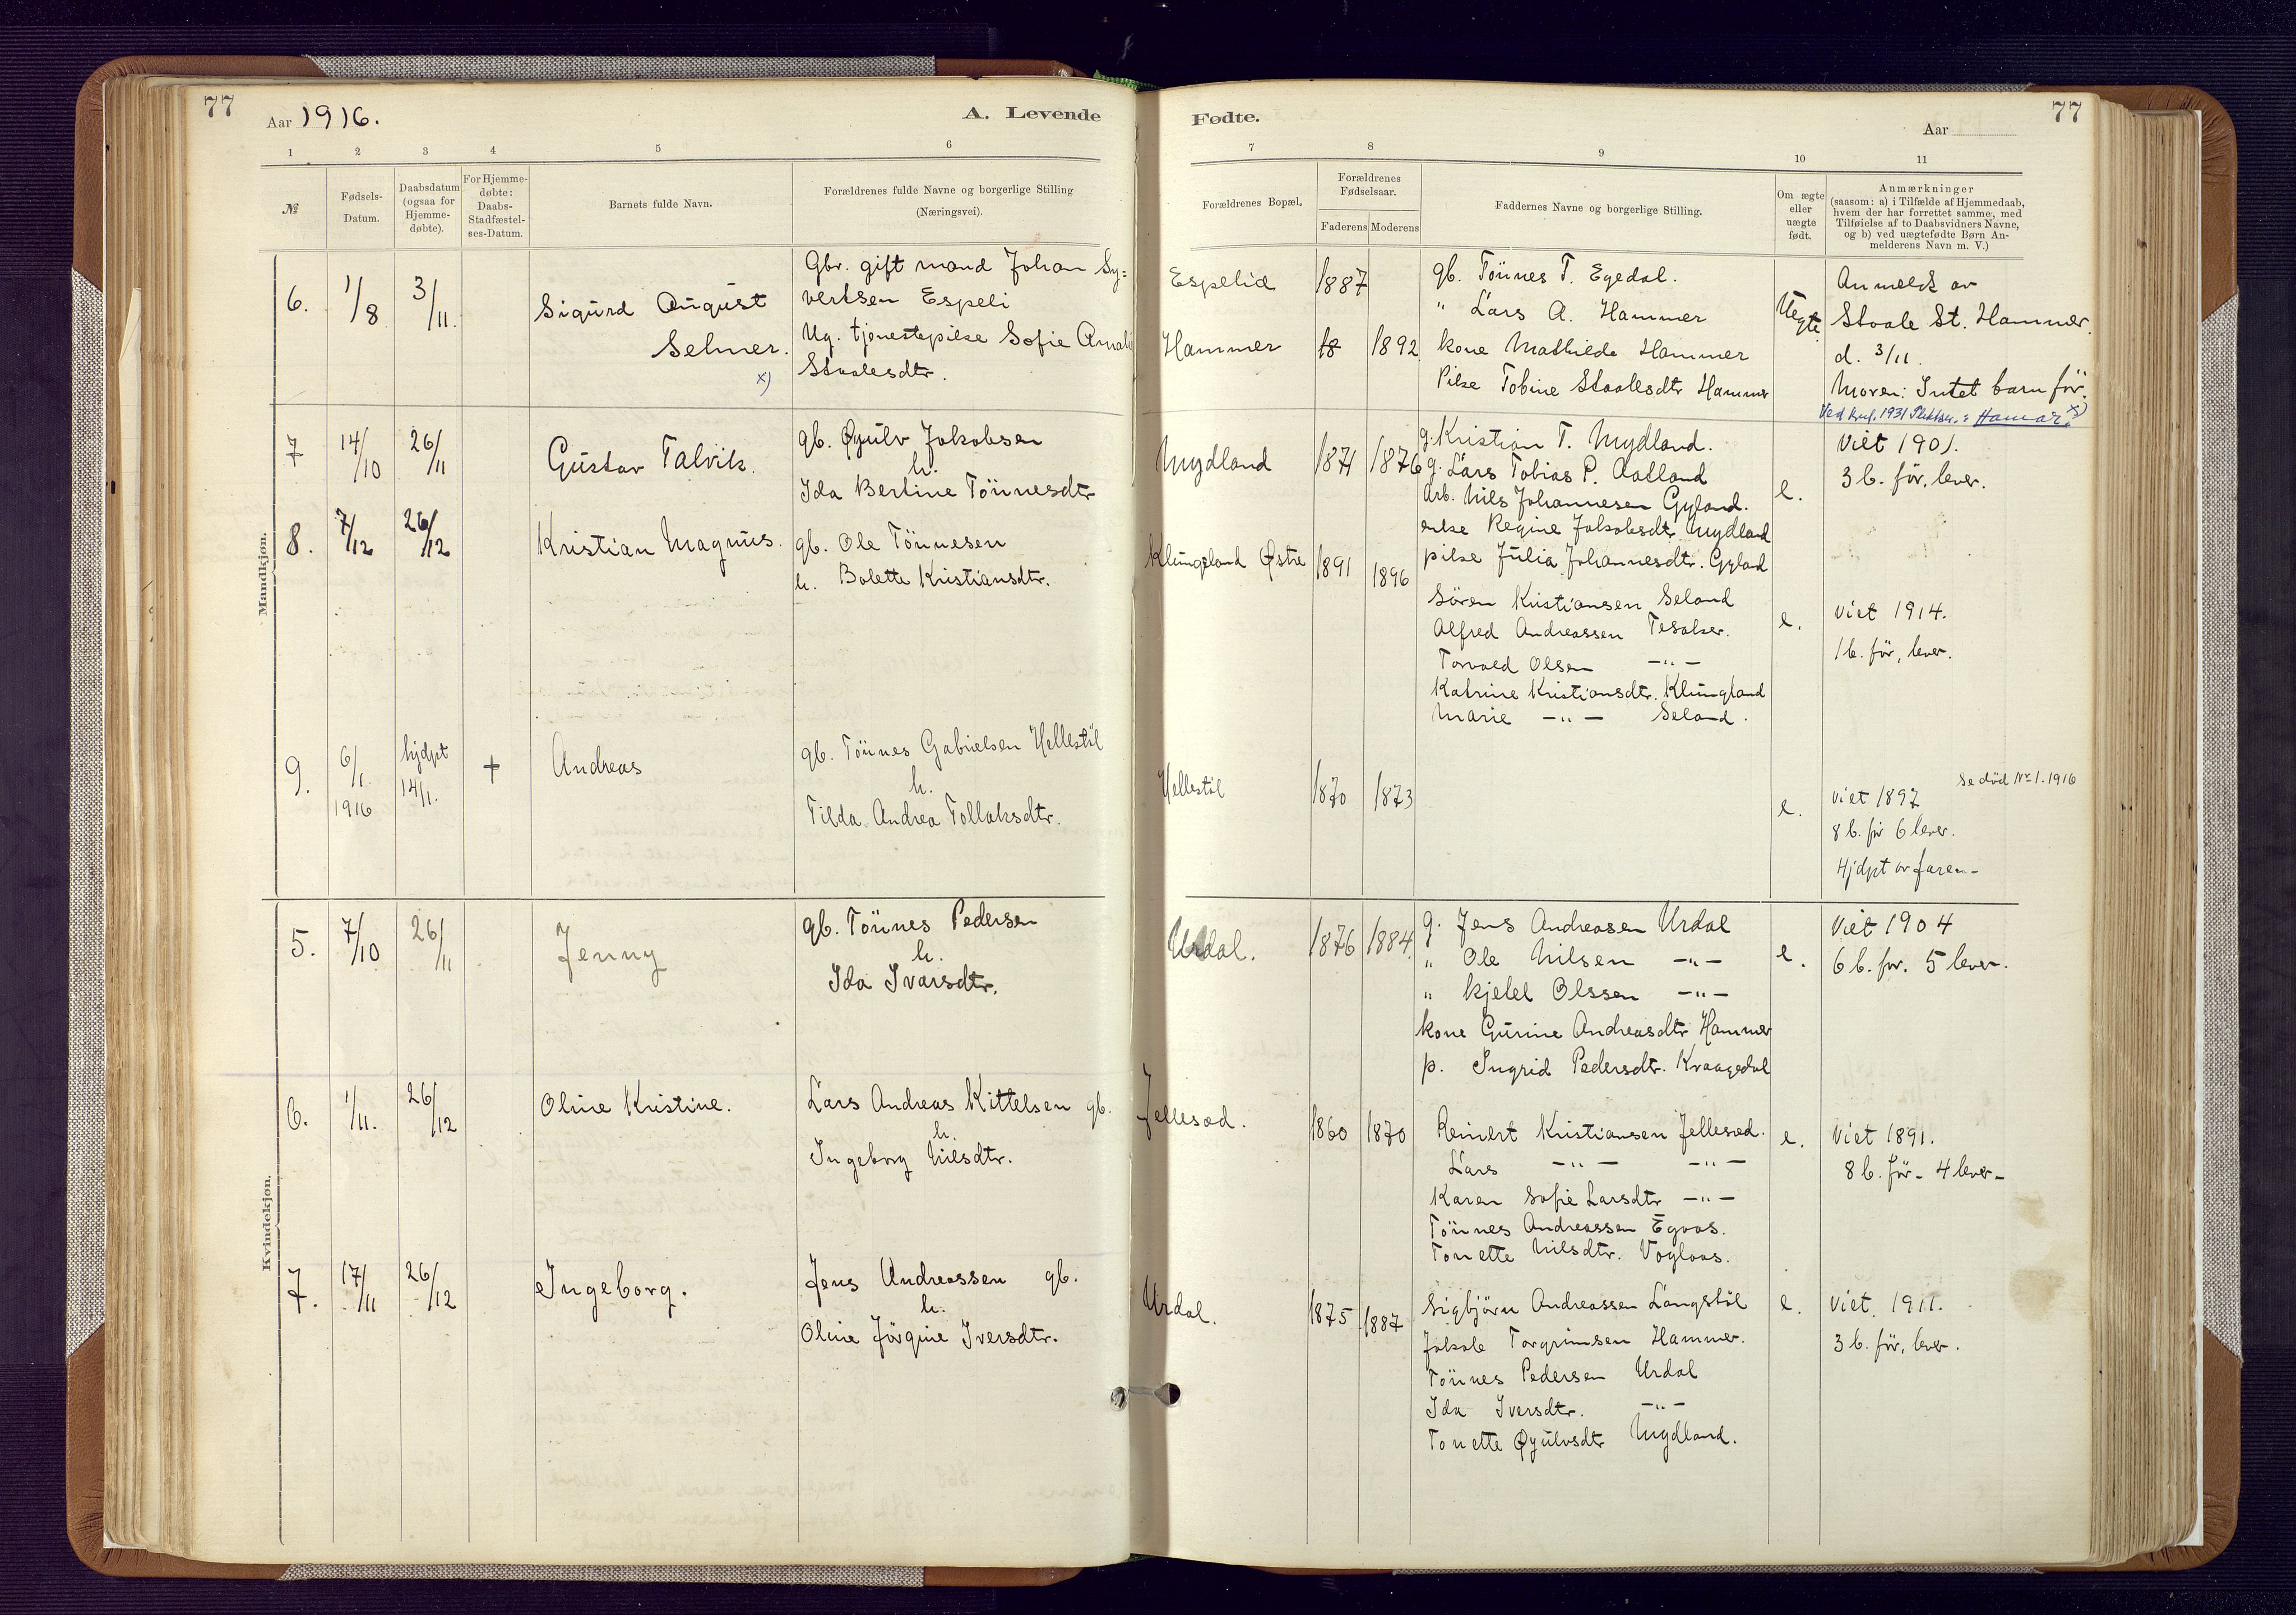 77
Aar 1916.
A. Levende
1 2 3 4 5 6
№
Fødsels-Datum.
Daabsdatum (ogsaa for Hjemme-døbte).
For Hjemme-døbte: Daabs-Stadfæstel-ses-Datum.
Barnets fulde Navn.
Forældrenes fulde Navne og borgerlige Stilling
(Næringsvei).
Mandkjøn.
6. 1/8 3/11.
Sigurd August
Selmer.
x)
Gbr. gift mand Johan Sy=
vertsen Espeli
Ug. tjenestepike Sofie Amali
Staalesdtr.
7 14/10 26/11
Gustav Talvik.
gb. Øyulv Jakobsen
h.
Ida Bertine Tönnesdtr
8. 7/12 26/12
Kristian Magnus.
gb. Ole Tönnesen
h. Bolette Kristiansdtr.
9. 6/1 1916
hjdpt 14/1.
+
Andreas
gb. Tönnes Gabrielsen Hellestöl
h.
Tilda Andrea Tollaksdtr.
Kvindekjøn.
5. 7/10 26/11
Jenny
gb. Tönnes Pedersen
h.
Ida Ivarsdtr.
6. 1/11. 26/12
Oline Kristine.
Lars Andreas Kittelsen gb.
h.
Ingeborg Nilsdtr.
7. 17/11 26/12
Ingeborg.
Jens Andreassen gb.
h.
Oline Jörgine Iversdtr.
Fødte.
Aar
77
7 8 9 10 11
Forældrenes Bopæl.
Forældrenes Fødselsaar.
Faderens Moderens
Faddernes Navne og borgerlige Stilling.
Om ægte eller uægte født.
Anmærkninger
(saasom: a) i Tilfælde af Hjemmedaab,
hvem der har forrettet samme, med
Tilføielse af to Daabsvidners Navne,
og b) ved uægtefødte Børn An-
melderens Navn m. V.)
Espelid 1887
Hammer 18 1892
gb. Tönnes T. Egedal.
" Lars A. Hammer
kone Mathilde Hammer
Pike Tobine Staalesdtr Hammer
Uegte
Anmeldt av
Staale St. Hammer.
d. 3/11.
Moren: Intet barn för.
Hamar x)
Mydland 1871 1876
g. Kristian T. Mydland.
g. Lars Tobias P. Aatland
Arb. Nils Johannesen Gyland.
enke Regine Jakobsdtr. Mydland
pike Julia Johannesdtr. Gylad
e.
Viet 1901.
3 b. för, lever.
Klungeland Østre 1891 1896
Sören Kristiansen Seland
Alfred Andreassen Tesaker.
Torvald Olsen —"—
Katrine Kristiansdtr. Klungland
Marie —"— Seland.
e.
Viet 1914.
1 b. för, lever.
Hellestöl 1870 1873
e.
se död Nr 1. 1916
Viet 1897
8 b. för 6 lever.
Hjdpt av faren-
Urdal. 1876 1884.
g. Jens Andreasen Urdal
" Ole Nilsen —"—
" Kjelel Olssen —"—
kone Gurine Andreasdtr Hammer
p. Ingrid Pedersdtr. Kraagedal
e.
Viet 1904
6 b. for. 5 lever.
Jellesad. 1860 1870
Reinert Kristiansen Jellesad.
Lars —"— —"—
Karen Sofie Larsdtr —"—
Tönnes Andreassen Egaas.
Tonette Nilsdtr. Voglaas.
e.
Viet 1891.
8 b. för - 4 lever-
Urdal. 1875 1887
Sigbjörn Andreassen Langstöl
Jakob Torgrimsen Hammer.
Tönnes Pedersen Urdal
Ida Iversdtr. —"—
Tonette Øyulvsdtr Mydland.
e.
Viet 1911.
3 b. för, lever.